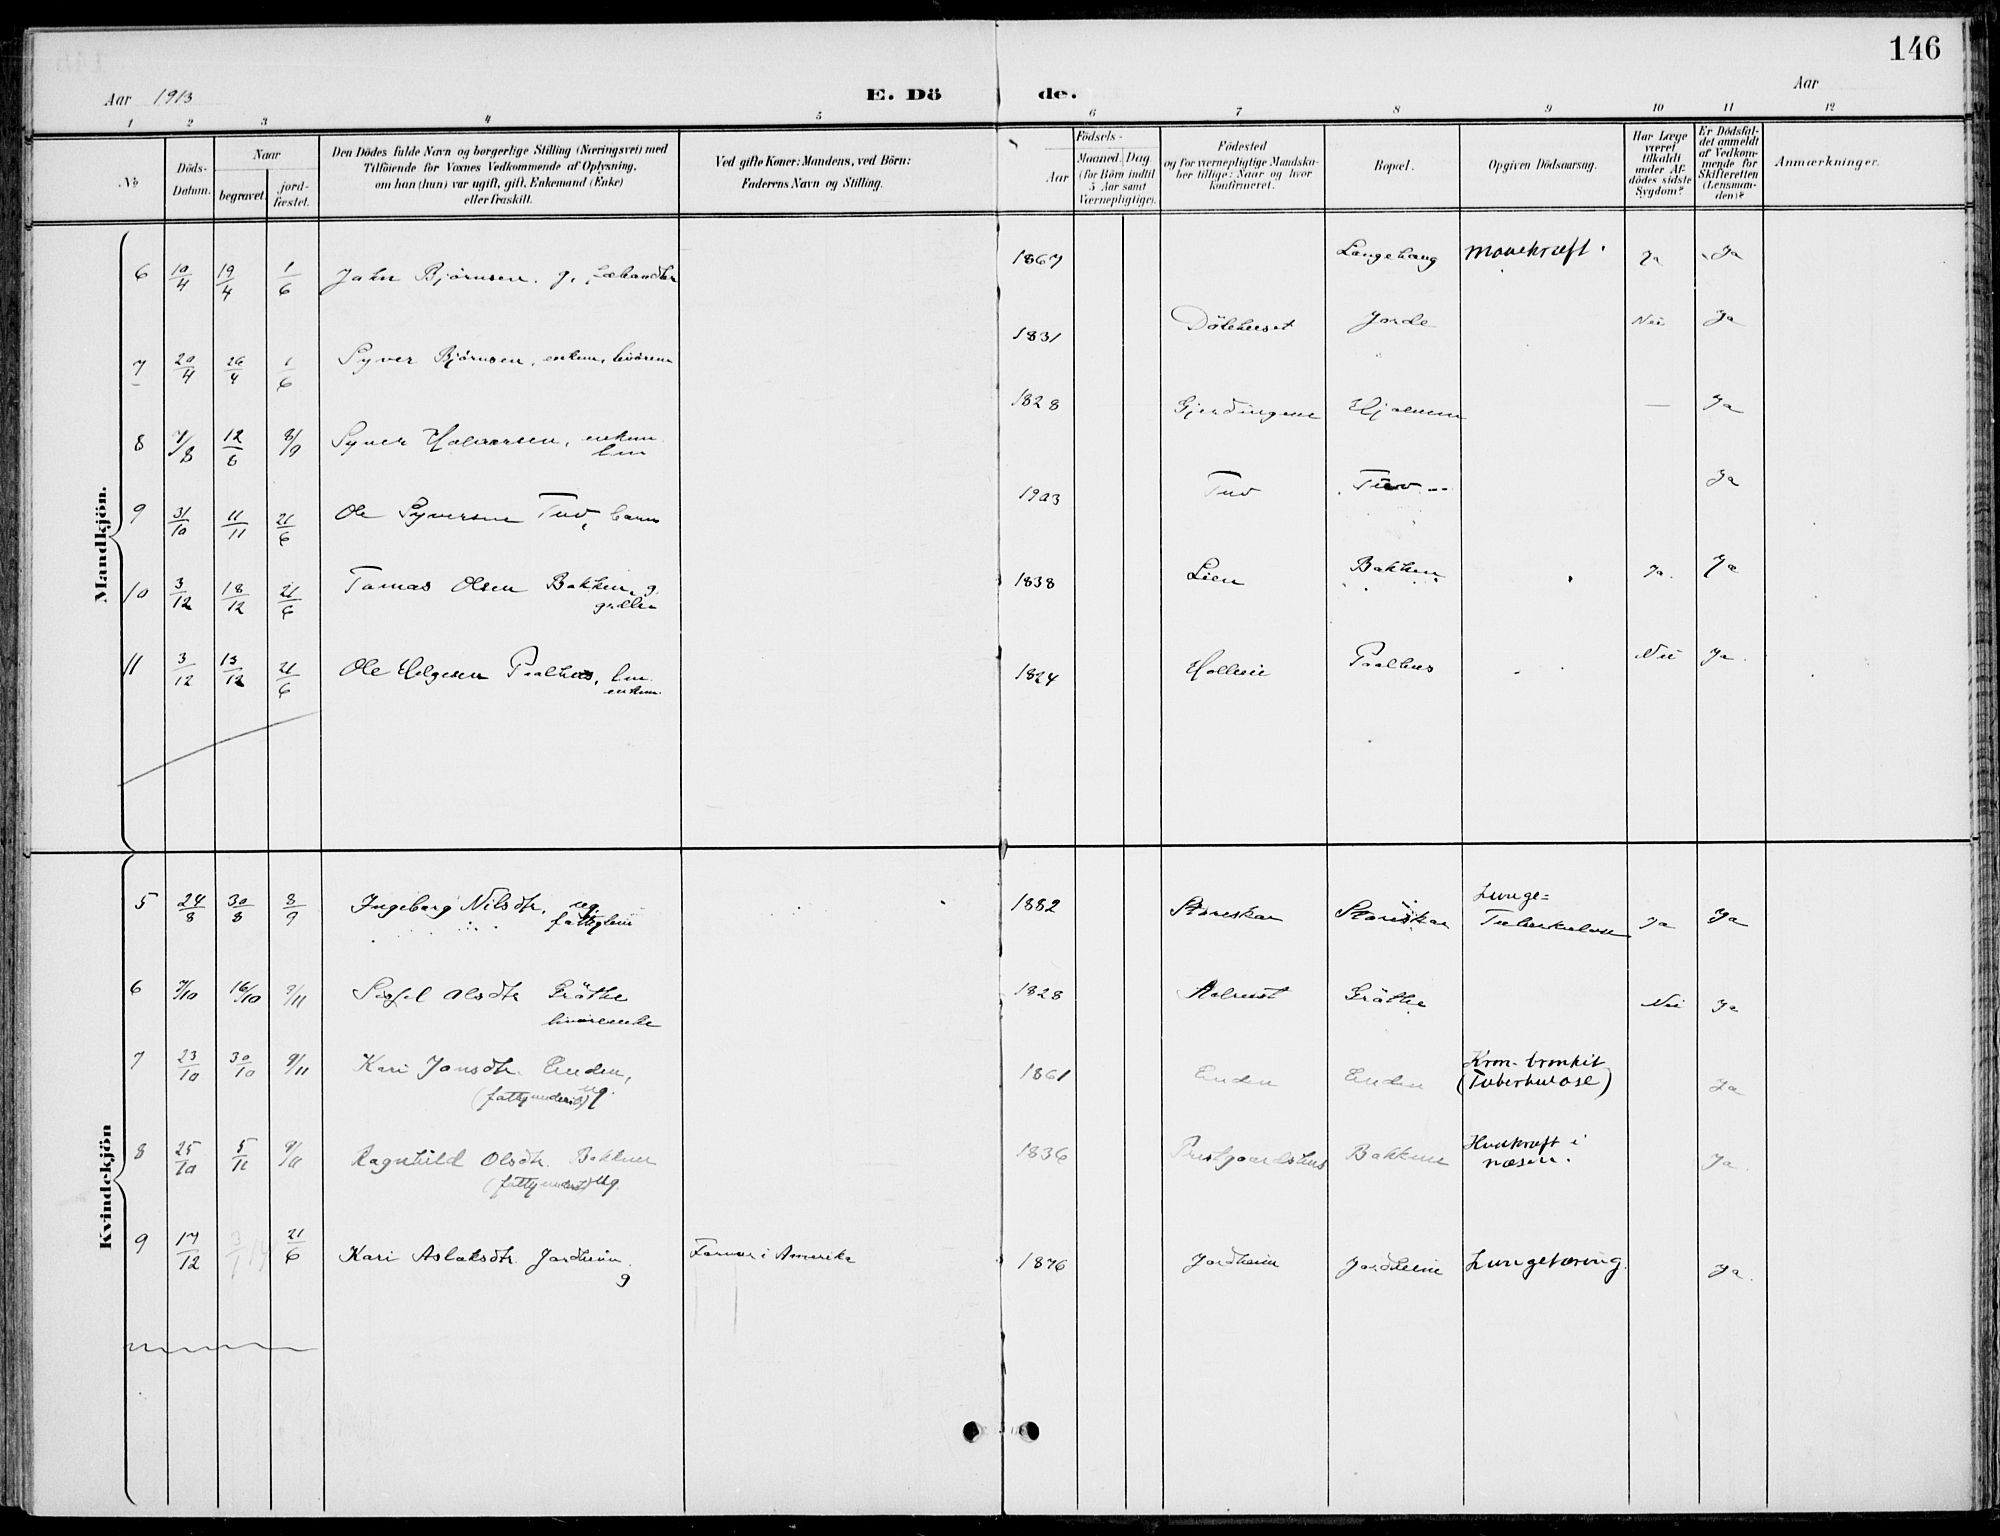 146
Aar 1913
E. Dö de.
Aar
1 2 3 4 5 6 7 8 9 10 11 12
No
Döds-Datum.
Naar
begravet.
jord-fæstet.
Den Dödes fulde Navn og borgerlige Stilling (Næringsvei) med
Tilföiende for Voxnes Vedkommende af Oplysning,
om han (hun) var ugift, gift, Enkemand (Enke)
eller fraskilt.
Ved gifte Koner: Mandens, ved Börn:
Faderens Navn og Stilling.
Födsels-
Aar
Maaned. Dag.
(for Börn indtil
5 Aar samt
Værnepligtige).
Födested
og for værnepligtige Mandska-
ber tillige: Naar og hvor
konfirmeret.
Bopæl.
Opgiven Dödsaarsag.
Har Læge
været
tilkaldt
under Af-
dödes sidste
Sygdom?
Er Dödsfal-
det anmeldt
af Vedkom-
mende for
Skifteretten
(Lensman-
den)?
Anmærkninger.
Mandkjön.
6 10/4 19/4 1/6 John Björnsen. g. 1867 Langehaug Mavekræft. Ja Ja
7 20/4 26/4 1/6 Syver Björnsen, enkem. 1831 Dölehuset Jorde Nei Ja
8 7/8 12/8 8/9 Syver Halvorsen, enkem. 1828 Gjerdingene — Ja
9 31/10 11/11 21/6 Ole Syversen Tuv, barn 1903 Tuv Tuv Ja
10 3/12 18/12 21/6 Tomas Olsen Bakken, g. 1838 Lien Bakken Ja. Ja
11 3/12 13/12 21/6 Ole Helgesen Paalhus,
enkem. 1824 Paalhus Nei Ja.
Kvindekjön
5 24/8 30/8 8/9 Ingeborg Nilsdtr. ug 1882 Storeskar Storeskar Lunge=
Tuberkulose Ja Ja
6 7/10 16/10 9/11 Sigfel Olsdtr Gröthe 1828 Gröthe Nei Ja
7 23/10 30/10 9/11 Kari Jonsdtr. Enden,
ug. 1861 Enden Enden Kron. bronkit
(Tuberkulose) Ja
8 25/10 5/11 9/11 Ragnhild Olsdtr. Bakken
ug. 1836 Prestgaardshus Bakken Hudkræft i
næsen. Ja.
9 17/12 3/1 14 21/6 Kari Aslaksdtr. Jordheim.
g Farmer i Amerika 1876 Jordheim Jordheim Lungetæring. Ja.